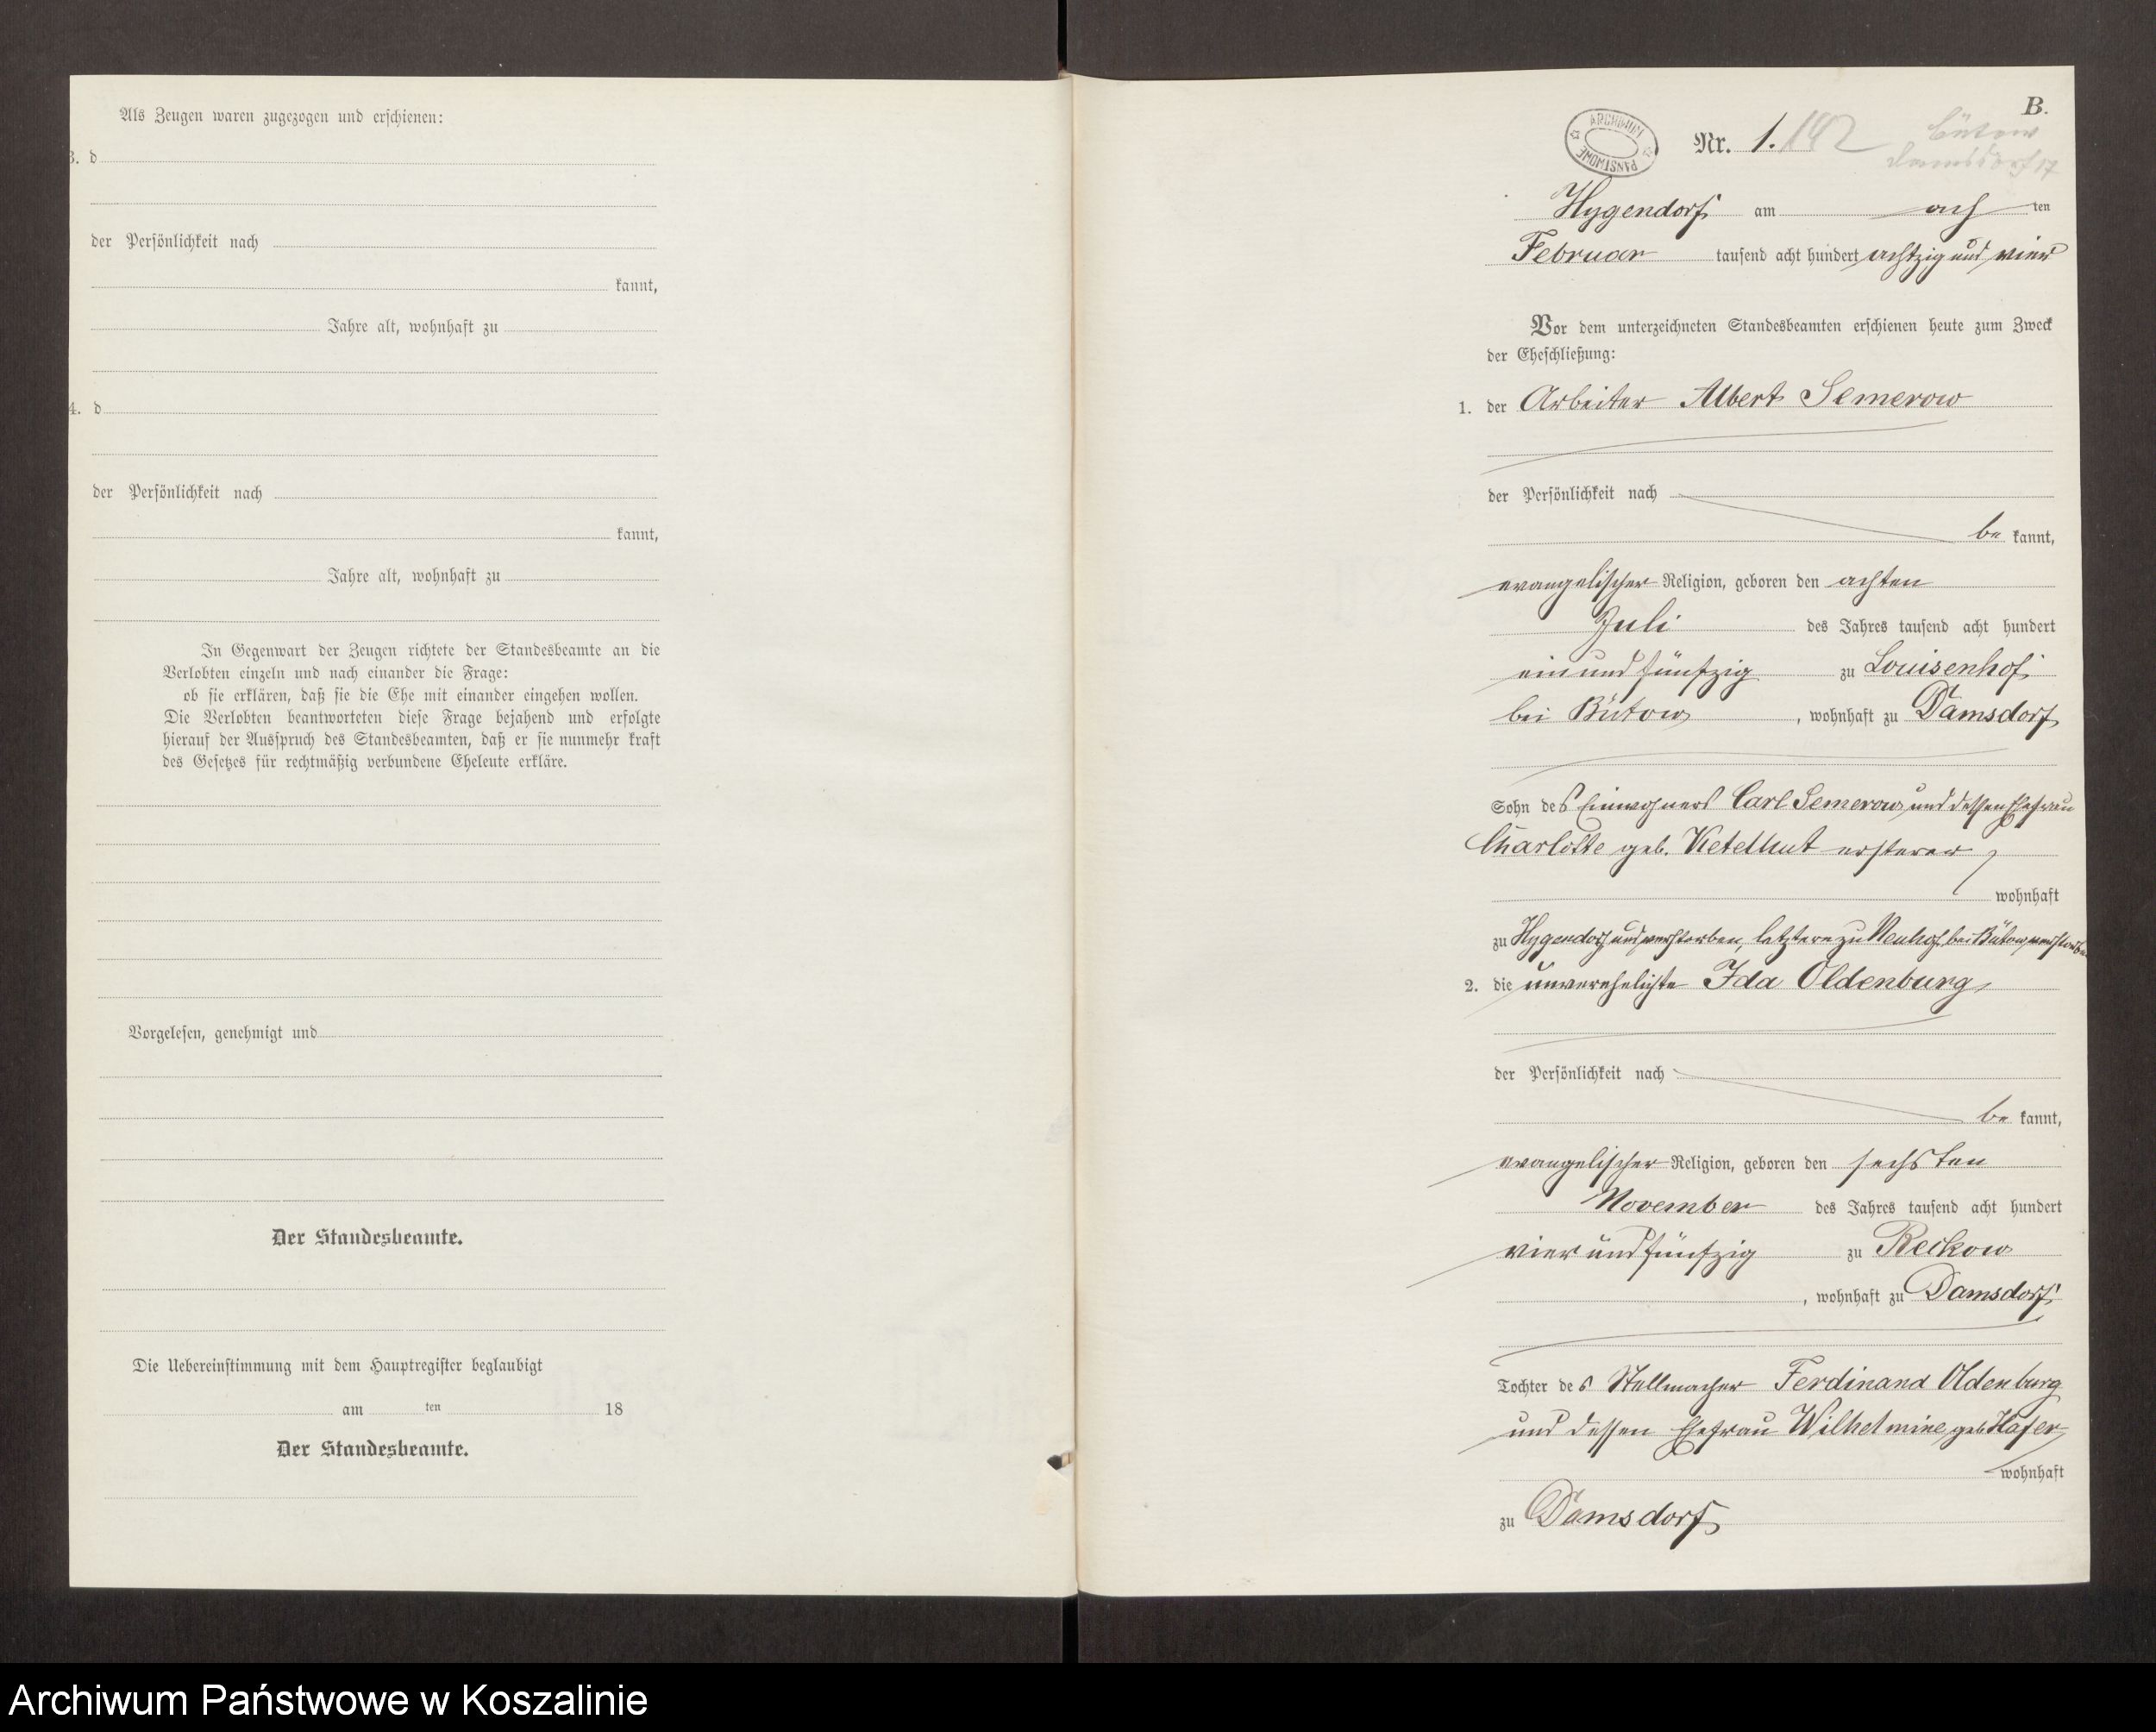 Als Zeugen waren zugezogen und erschienen:
3. d
der Persönlichkeit nach
kannt,
Jahre alt, wohnhaft zu
4. d
der Persönlichkeit nach
kannt,
Jahre alt, wohnhaft zu
In Gegenwart der Zeugen richtete der Standesbeamte an die
Verlobten einzeln und nach einander die Frage:
ob sie erklären, daß sie die Ehe mit einander eingehen wollen.
Die Verlobten beantworteten diese Frage bejahend und erfolgte
hierauf der Ausspruch des Standesbeamten, daß er sie nunmehr kraft
des Gesetzes für rechtmäßig verbundene Eheleute erkläre.
Vorgelesen, genehmigt und
Der Standesbeamte.
Die Uebereinstimmung mit dem Hauptregister beglaubigt
am ten 18
Der Standesbeamte.
B.
ARCHIWUM PAŃSTWOWE
Nr. 1. 182 Bütow
Damsdorf 17
Hygendorf am ach ten
Februar tausend acht hundert achtzig und vier
Vor dem unterzeichneten Standesbeamten erschienen heute zum Zweck
der Eheschließung:
1. der Arbeiter Albert Semerow
der Persönlichkeit nach
be kannt,
evangelischer Religion, geboren den achten
Juli des Jahres tausend acht hundert
ein und fünfzig zu Louisenhof
bei Bütow, wohnhaft zu Damsdorf
Sohn des Einwohners Carl Semerow und dessen Ehefrau
Charlotte geb. Ketelhut ersterer
wohnhaft
zu Hygendorf und verstorben, letztere zu Neuhof bei Bütow verstorben
2. die unverehelichte Ida Oldenburg
der Persönlichkeit nach
be kannt,
evangelischer Religion, geboren den sechsten
November des Jahres tausend acht hundert
vier und fünfzig zu Reckow
, wohnhaft zu Damsdorf
Tochter des Stellmacher Ferdinand Oldenburg
und dessen Ehefrau Wilhelmine geb. Hafer
wohnhaft
zu Damsdorf
Archiwum Państwowe w Koszalinie